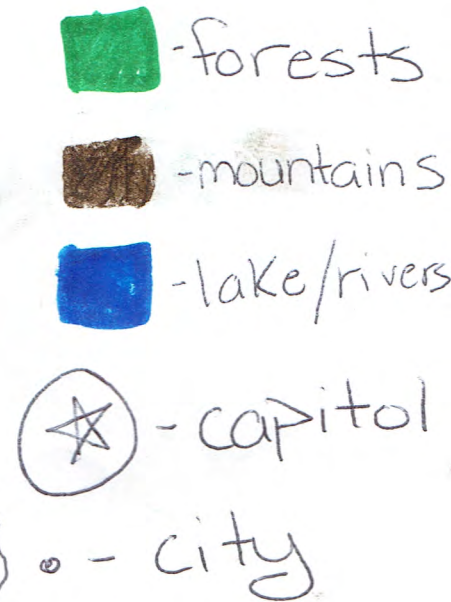 -forests
-mountains
-lake/rivers
-capitol
- city